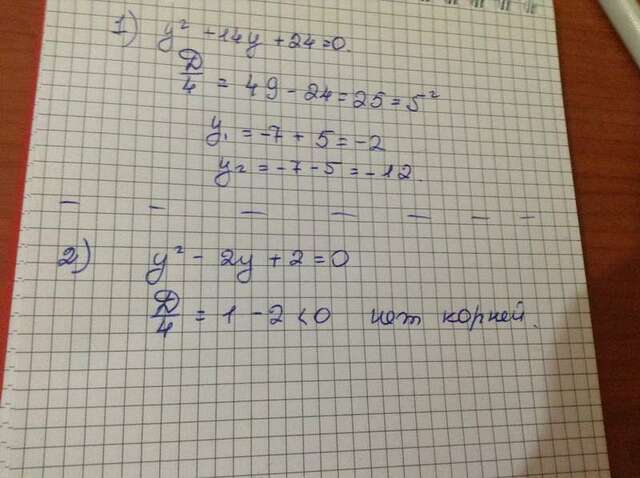 1) y² - 14y + 24 = 0.
D/4 = 49 - 24 = 25 = 5²
y₁ = -7 + 5 = -2
y₂ = -7 - 5 = -12.
2) y² - 2y + 2 = 0
D/4 = 1 - 2 < 0 нет корней.